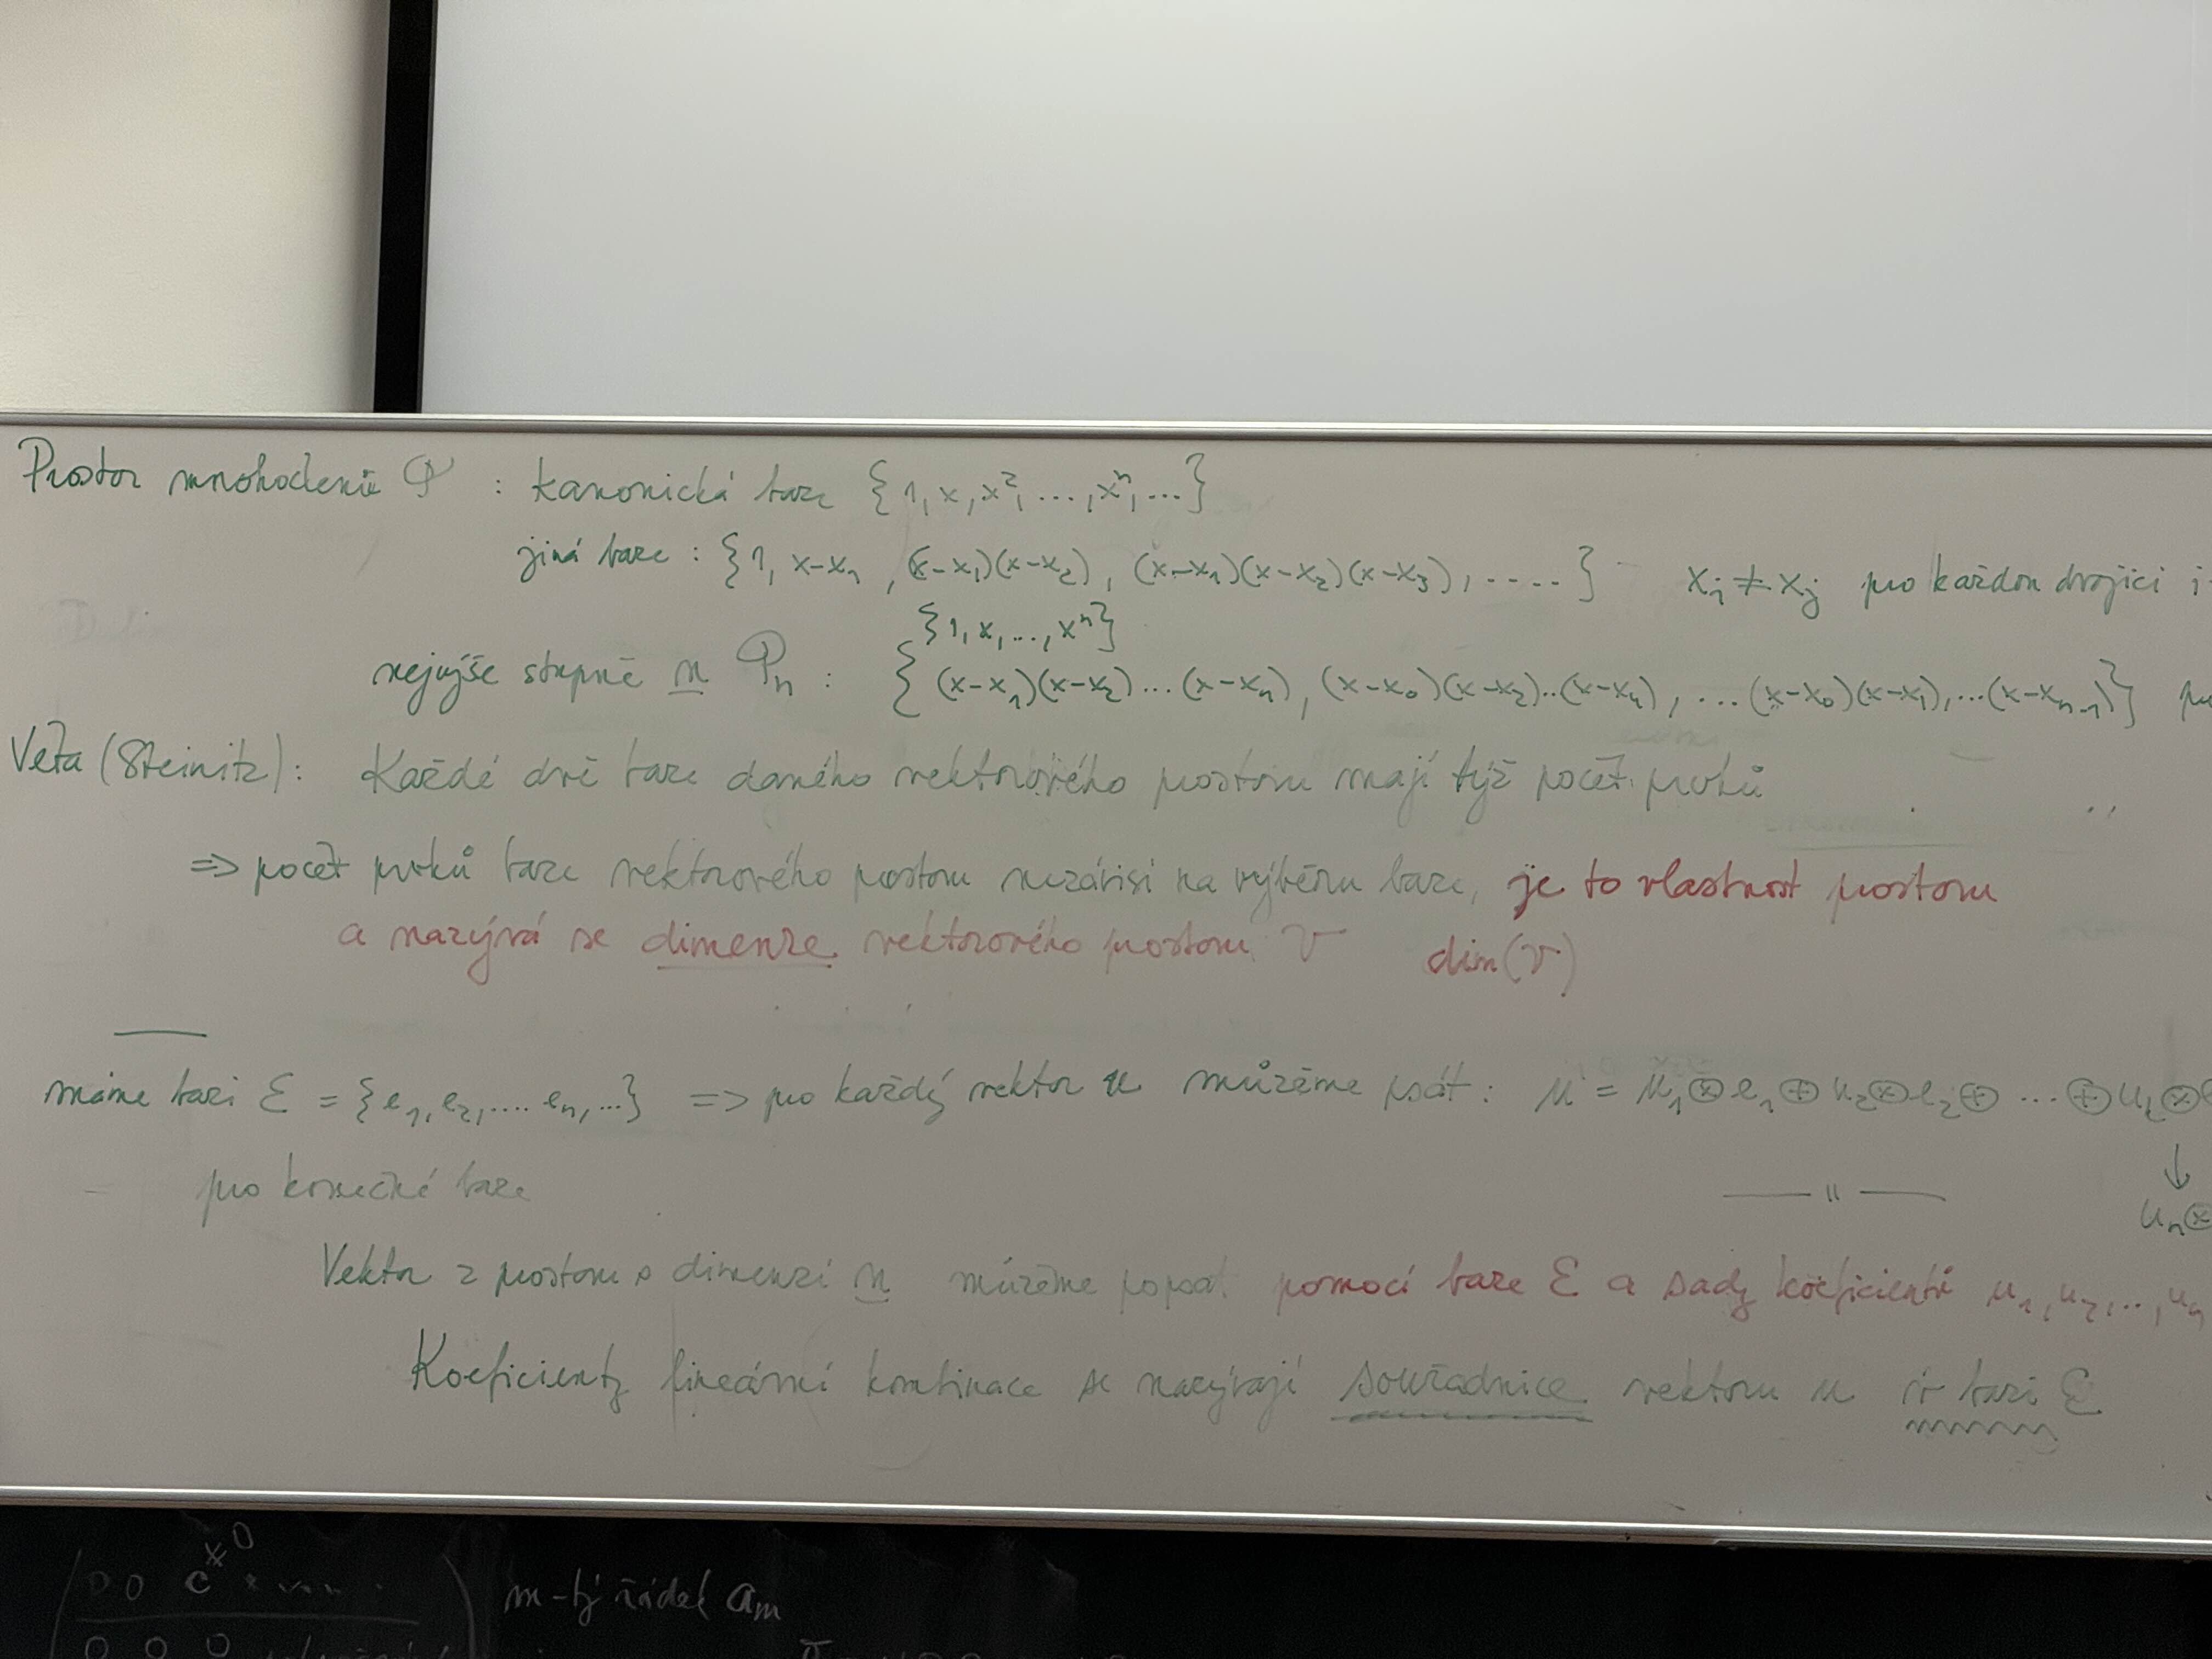 Prostor mnohočlenů P : kanonická baze {1, x, x², ..., xⁿ, ...}
jiná baze : {1, x-x₁, (x-x₁)(x-x₂), (x-x₁)(x-x₂)(x-x₃), ....} xᵢ ≠ xⱼ pro každou dvojici i
{1, x, ..., xⁿ}
nejvýše stupně n Pₙ : {(x-x₁)(x-x₂)...(x-xₙ), (x-x₀)(x-x₂)..(x-xₙ), ...(x-x₀)(x-x₁),...(x-xₙ₋₁)}
Věta (Steinitz): Každé dvě baze daného vektorového prostoru mají týž počet prvků
=> počet prvků baze vektorového prostoru nezávisí na výběru baze, je to vlastnost prostoru
a nazývá se dimenze vektorového prostoru V dim(V)
máme bazi ℰ = {e₁, e₂, .... eₙ, ...} => pro každý vektor u můžeme psát: u = u₁⊗e₁⊕u₂⊗e₂⊕ ... ⊕
pro konečné baze — " — ↓
uₙ⊗
Vektor z prostoru s dimenzí n můžeme popsat pomocí baze ℰ a sady koeficientů u₁, u₂, .., uₙ
Koeficienty lineární kombinace se nazývají souřadnice vektoru u v bazi ℰ
m-tý řádek aₘ